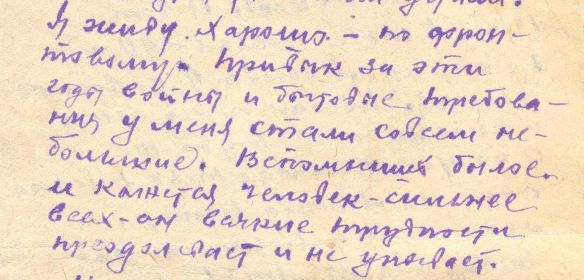 Я живу. Харошо – по фрон-
товому. Привык за эти
годы войны и бытовые требова-
ния у меня стали совсем не-
большие. Вспомнишь былое
и кажется человек – сильнее
всех – он всякие трудности
преодолевает и не унывает.